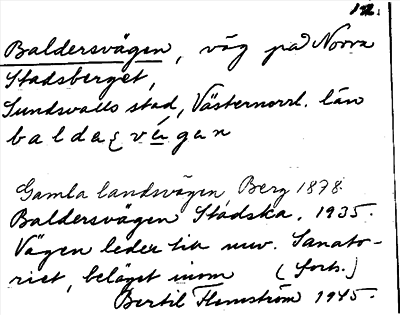 122.
Baldersvägen, väg på Norra
Stadsberget,
Sundsvalls stad, Västernorrl. län
baldaʂvägan
Gamla landsvägen, Berg 1878.
Baldersvägen Stadska. 1935.
Vägen leder till nuv. Sanato-
riet, beläget inom (forts.)
Bertil Flemström 1945.